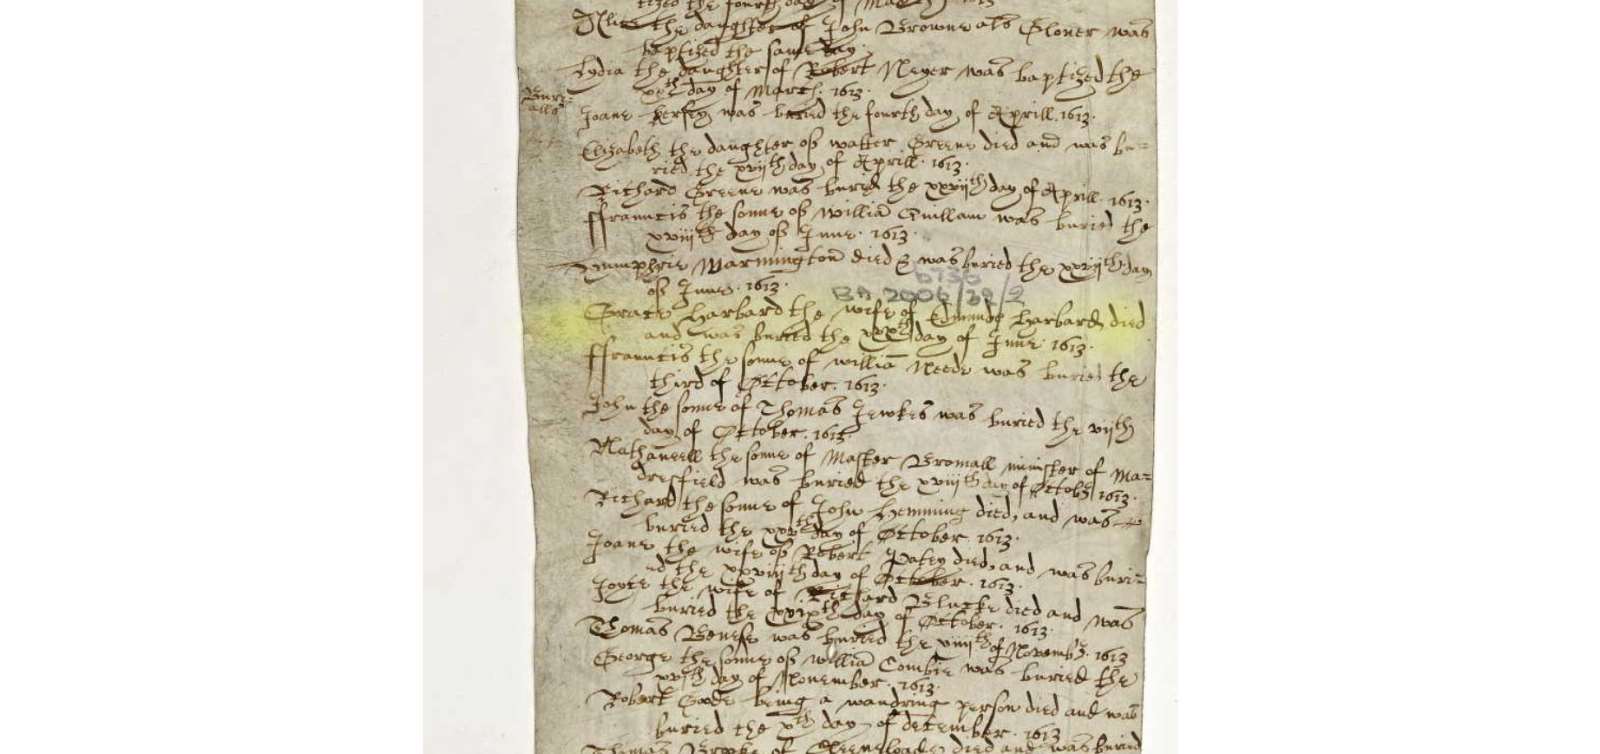 tized the fourth day of March 1613
Alice the daughter of John Browne als Glover was
baptized the same day.
Lydia the daughter of Robert Meyer was baptized the
xxth day of March. 1613.
Buri-
alls
Joane was buried the fourth day of Aprill. 1613.
Elizabeth the daughter of Walter Greene died and was bu=
ried the xviith day of Aprill. 1613.
Richard Greene was buried the xxviith day of Aprill. 1613.
ffranncis the sonne of Willia Guillam was buried the
xviiith day of June. 1613.
Humphrie Warmington died & was buried the xxviith day
of June. 1613.
6735
BA 2006/32/2
Grace Harbard the wife of Edmund Harbard died
and was buried the xxxth day of June. 1613.
ffranncis the sonne of Willia Neede was buried the
third of October. 1613.
John the sonne of Thomas Jewkes was buried the viith
day of October. 1613.
Nathaneell the sonne of Master Bromall minister of Ma=
dresfield was buried the xviiith day of Octob 1613.
Richard the sonne of John Hemming died, and was
buried the day of October. 1613.
Joane the wife of Robert Patey died, and was buri=
ed the xxviiith day of October. 1613.
Joyce the wife of Richard Blucke died and was
buried the xxixth day of October. 1613.
Thomas was buried the viiith of Novemb. 1613
George the sonne of Willia Combie was buried the
xvth day of November. 1613.
Robert Goode being a wandring person died and was
buried the xth day of december. 1613
Thomas Brooke of died and was buried